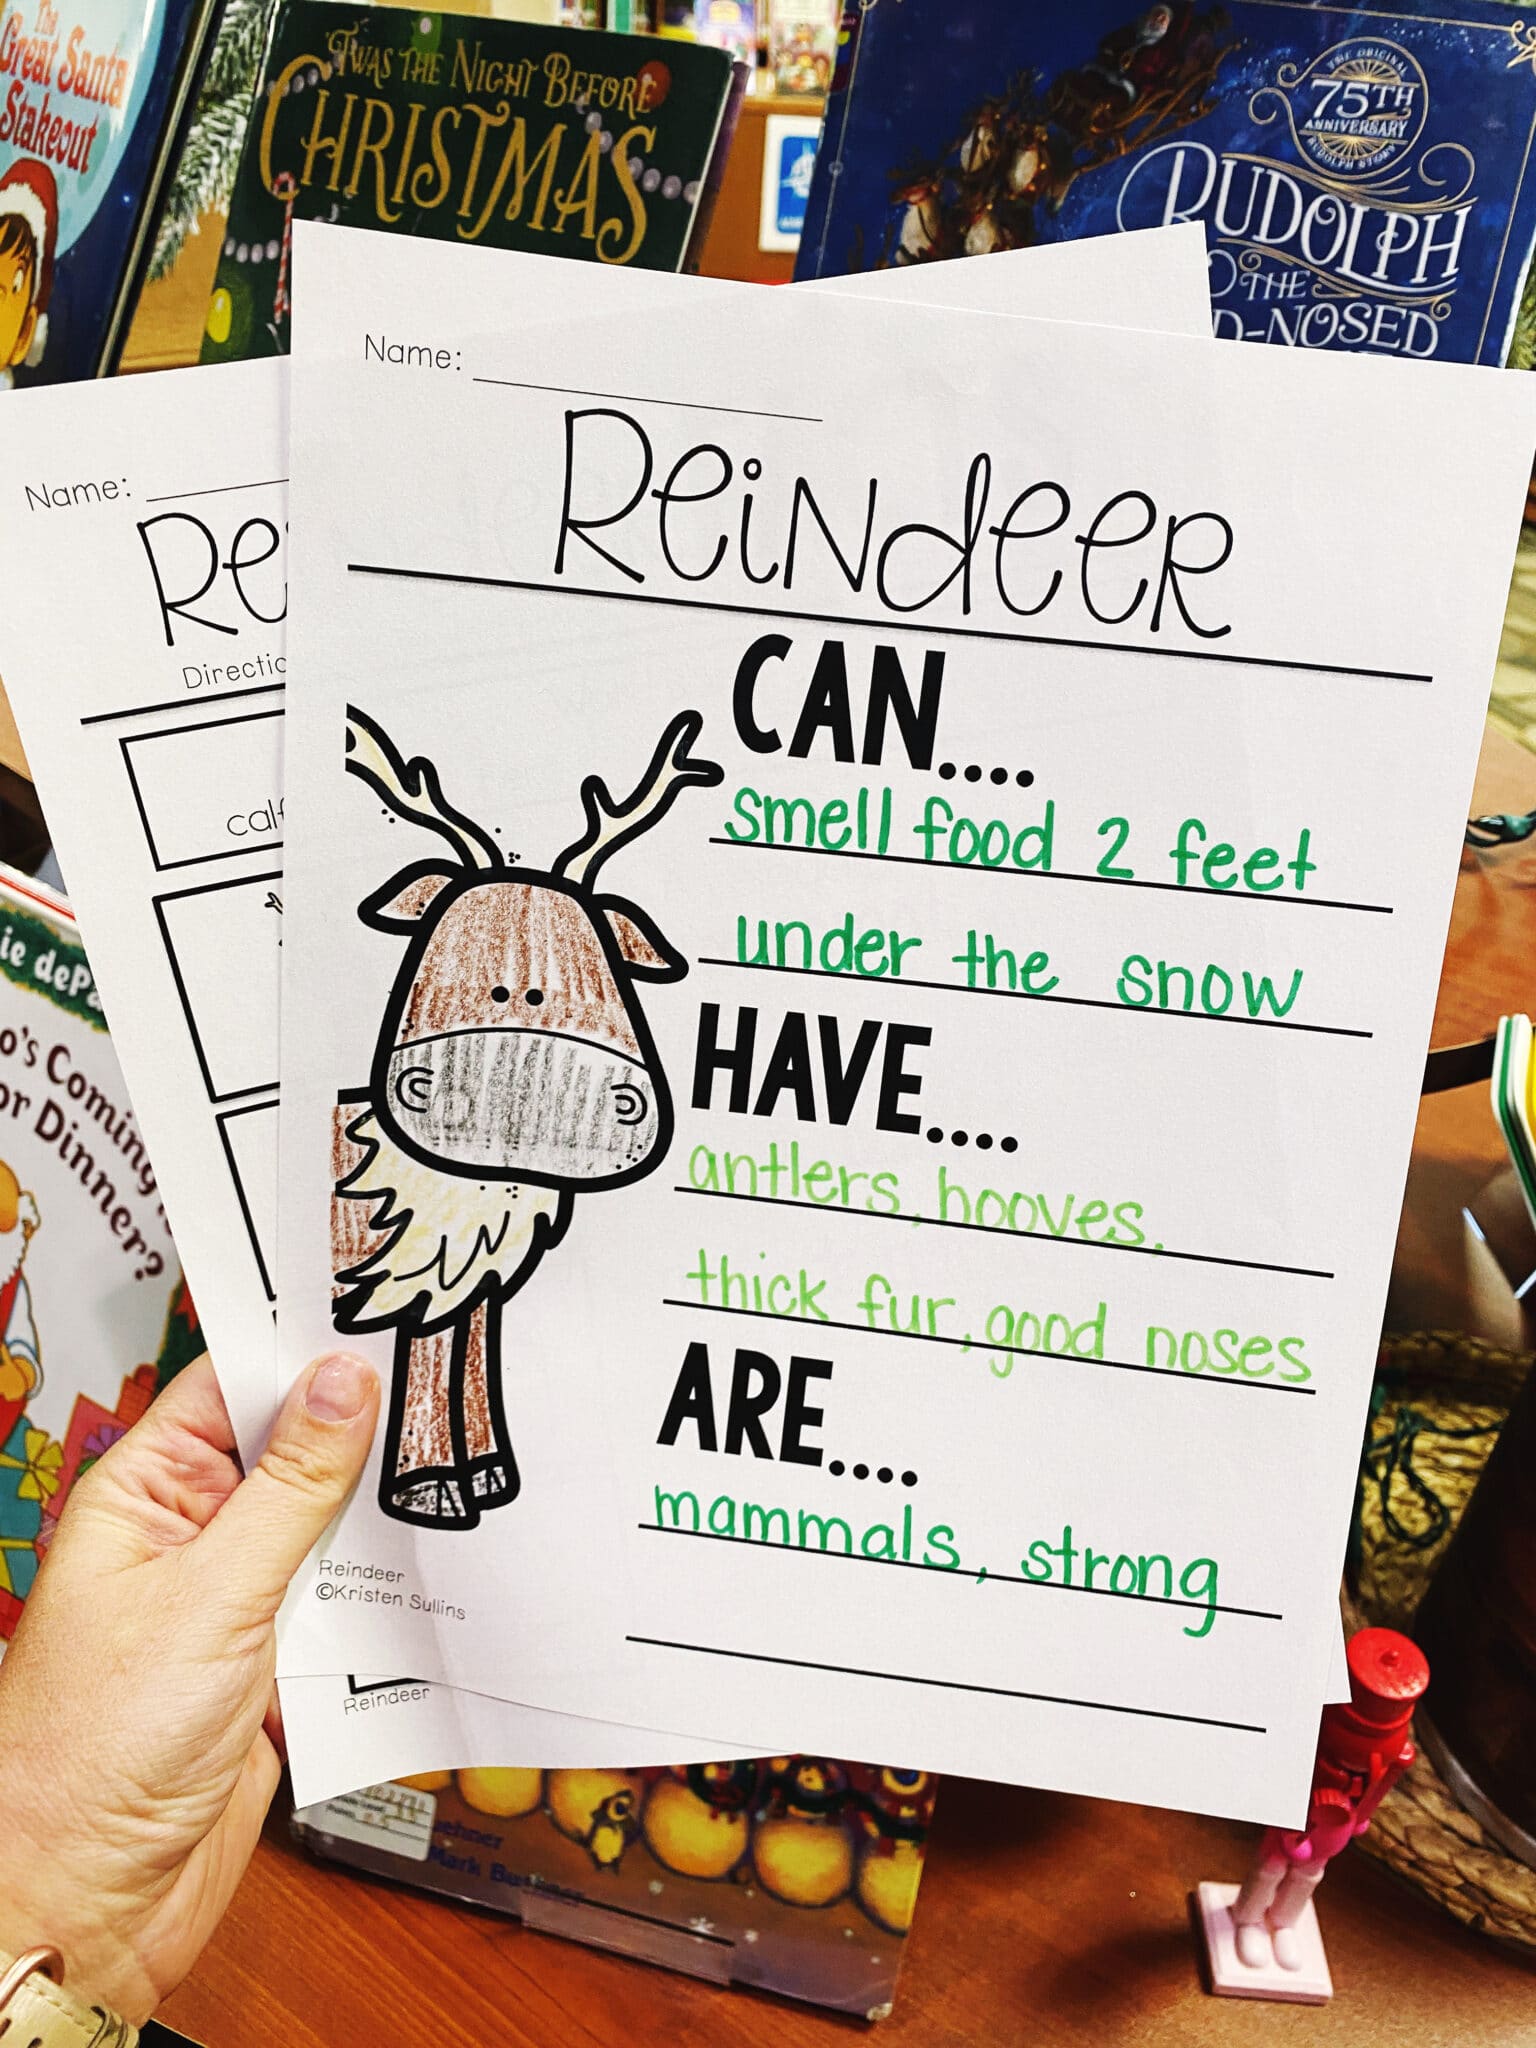 The
Great Santa
Stakeout
'TWAS THE NIGHT BEFORE
CHRISTMAS
THE ORIGINAL
75TH
ANNIVERSARY
RUDOLPH STORY
RUDOLPH
THE
D-NOSED
Name:
Reindeer
CAN....
smell food 2 feet
under the snow
HAVE....
antlers, hooves,
thick fur, good noses
ARE....
mammals, strong
Reindeer
©Kristen Sullins
Name:
Re
Directio
calf
Reindeer
ie deP
o's Coming
or Dinner?
ehner
Mark Bu